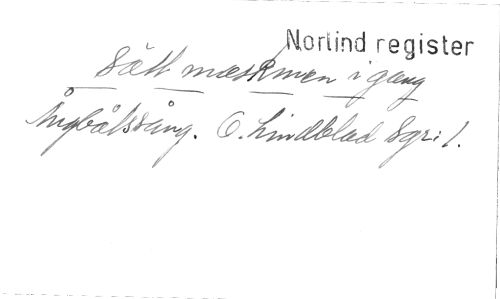 Norlind register
Sätt maskinen i gang
Ångbåtssång. O. Lindblad Sgr: 1.